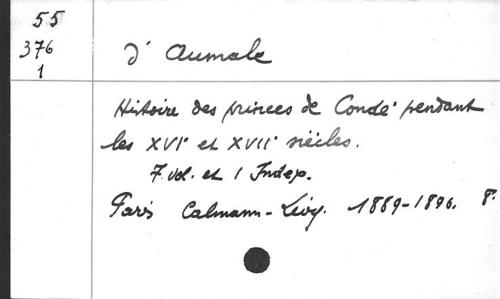 55
376
1
d'Aumale
Histoire des princes de Condé pendant
les XVIe et XVIIe siècles.
7 vol. et 1 Index.
Paris Calmann-Lévy. 1889-1896. 8°.